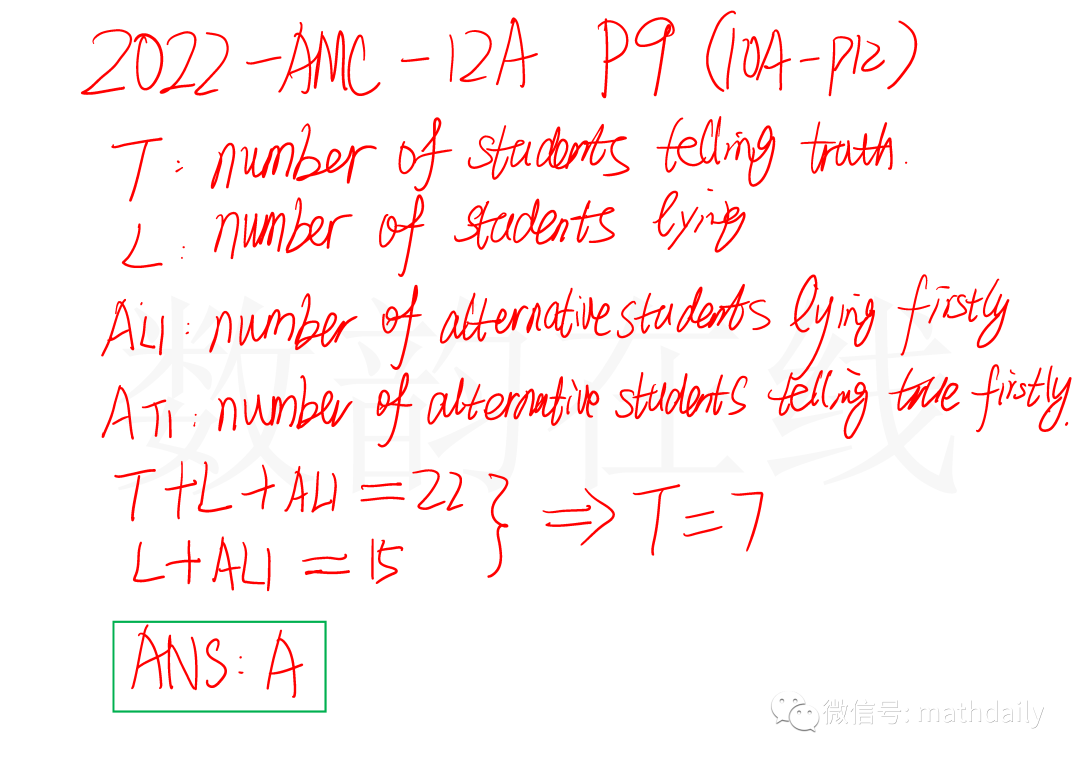 2022-AMC-12A P9 (10A-P12)
T: number of students telling truth.
L: number of students lying
AL1: number of alternative students lying firstly
AT1: number of alternative students telling true firstly.
T+L+AL1=22
L+AL1=15
} ⇒ T=7
ANS: A
数韵在线
微信号: mathdaily